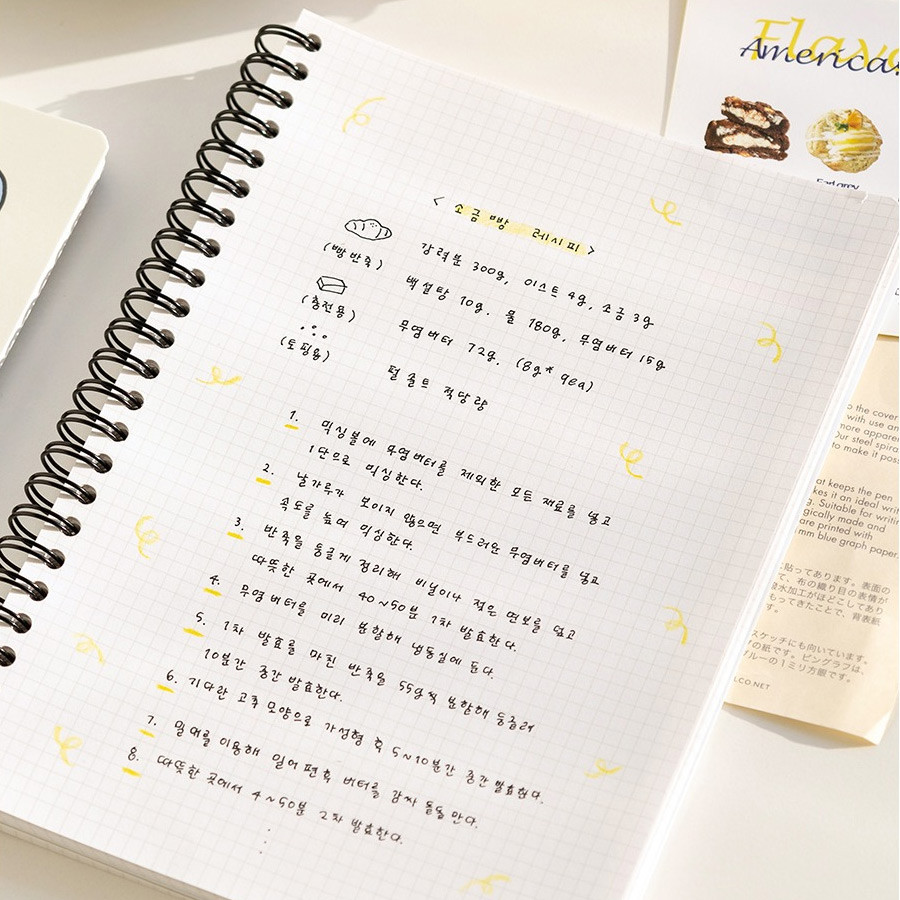 Flavo
America
Earl grey
< 소금빵 레시피 >
(빵반죽) 강력분 300g, 이스트 4g, 소금 3g
백설탕 10g. 물 180g, 무염버터 15g
(충전용) 무염버터 72g. (8g * 9ea)
(토핑용) 펄 솔트 적당량
1. 믹싱볼에 무염버터를 제외한 모든 재료를 넣고
1단으로 믹싱한다.
2. 날가루가 보이지 않으면 부드러운 무염버터를 넣고
속도를 높여 믹싱한다.
3. 반죽을 둥글게 정리해 비닐이나 젖은 면보를 덮고
따뜻한 곳에서 40~50분 1차 발효한다.
4. 무염버터를 미리 분할해 냉동실에 둔다.
5. 1차 발효를 마친 반죽을 55g씩 분할해 둥글려
10분간 중간 발효한다.
6. 기다란 고추 모양으로 가성형 후 5~10분간 중간 발효한다.
7. 밀대를 이용해 밀어 편 후 버터를 감싸 돌돌 만다.
8. 따뜻한 곳에서 4~50분 2차 발효한다.
the cover
with use an
more apparen
Our steel spira
to make it poss
at keeps the pen
kes it an ideal writ
g. Suitable for writin
gically made and
are printed with
1mm blue graph paper.
に貼ってあります。表面の
て、布の織り目の表情が
撥水加工がほどこしてあり
もってきたことで、背表紙
す。
スケッチにも向いています。
グの紙です。ピングラフは、
ブルーの1ミリ方眼です。
LCO.NET